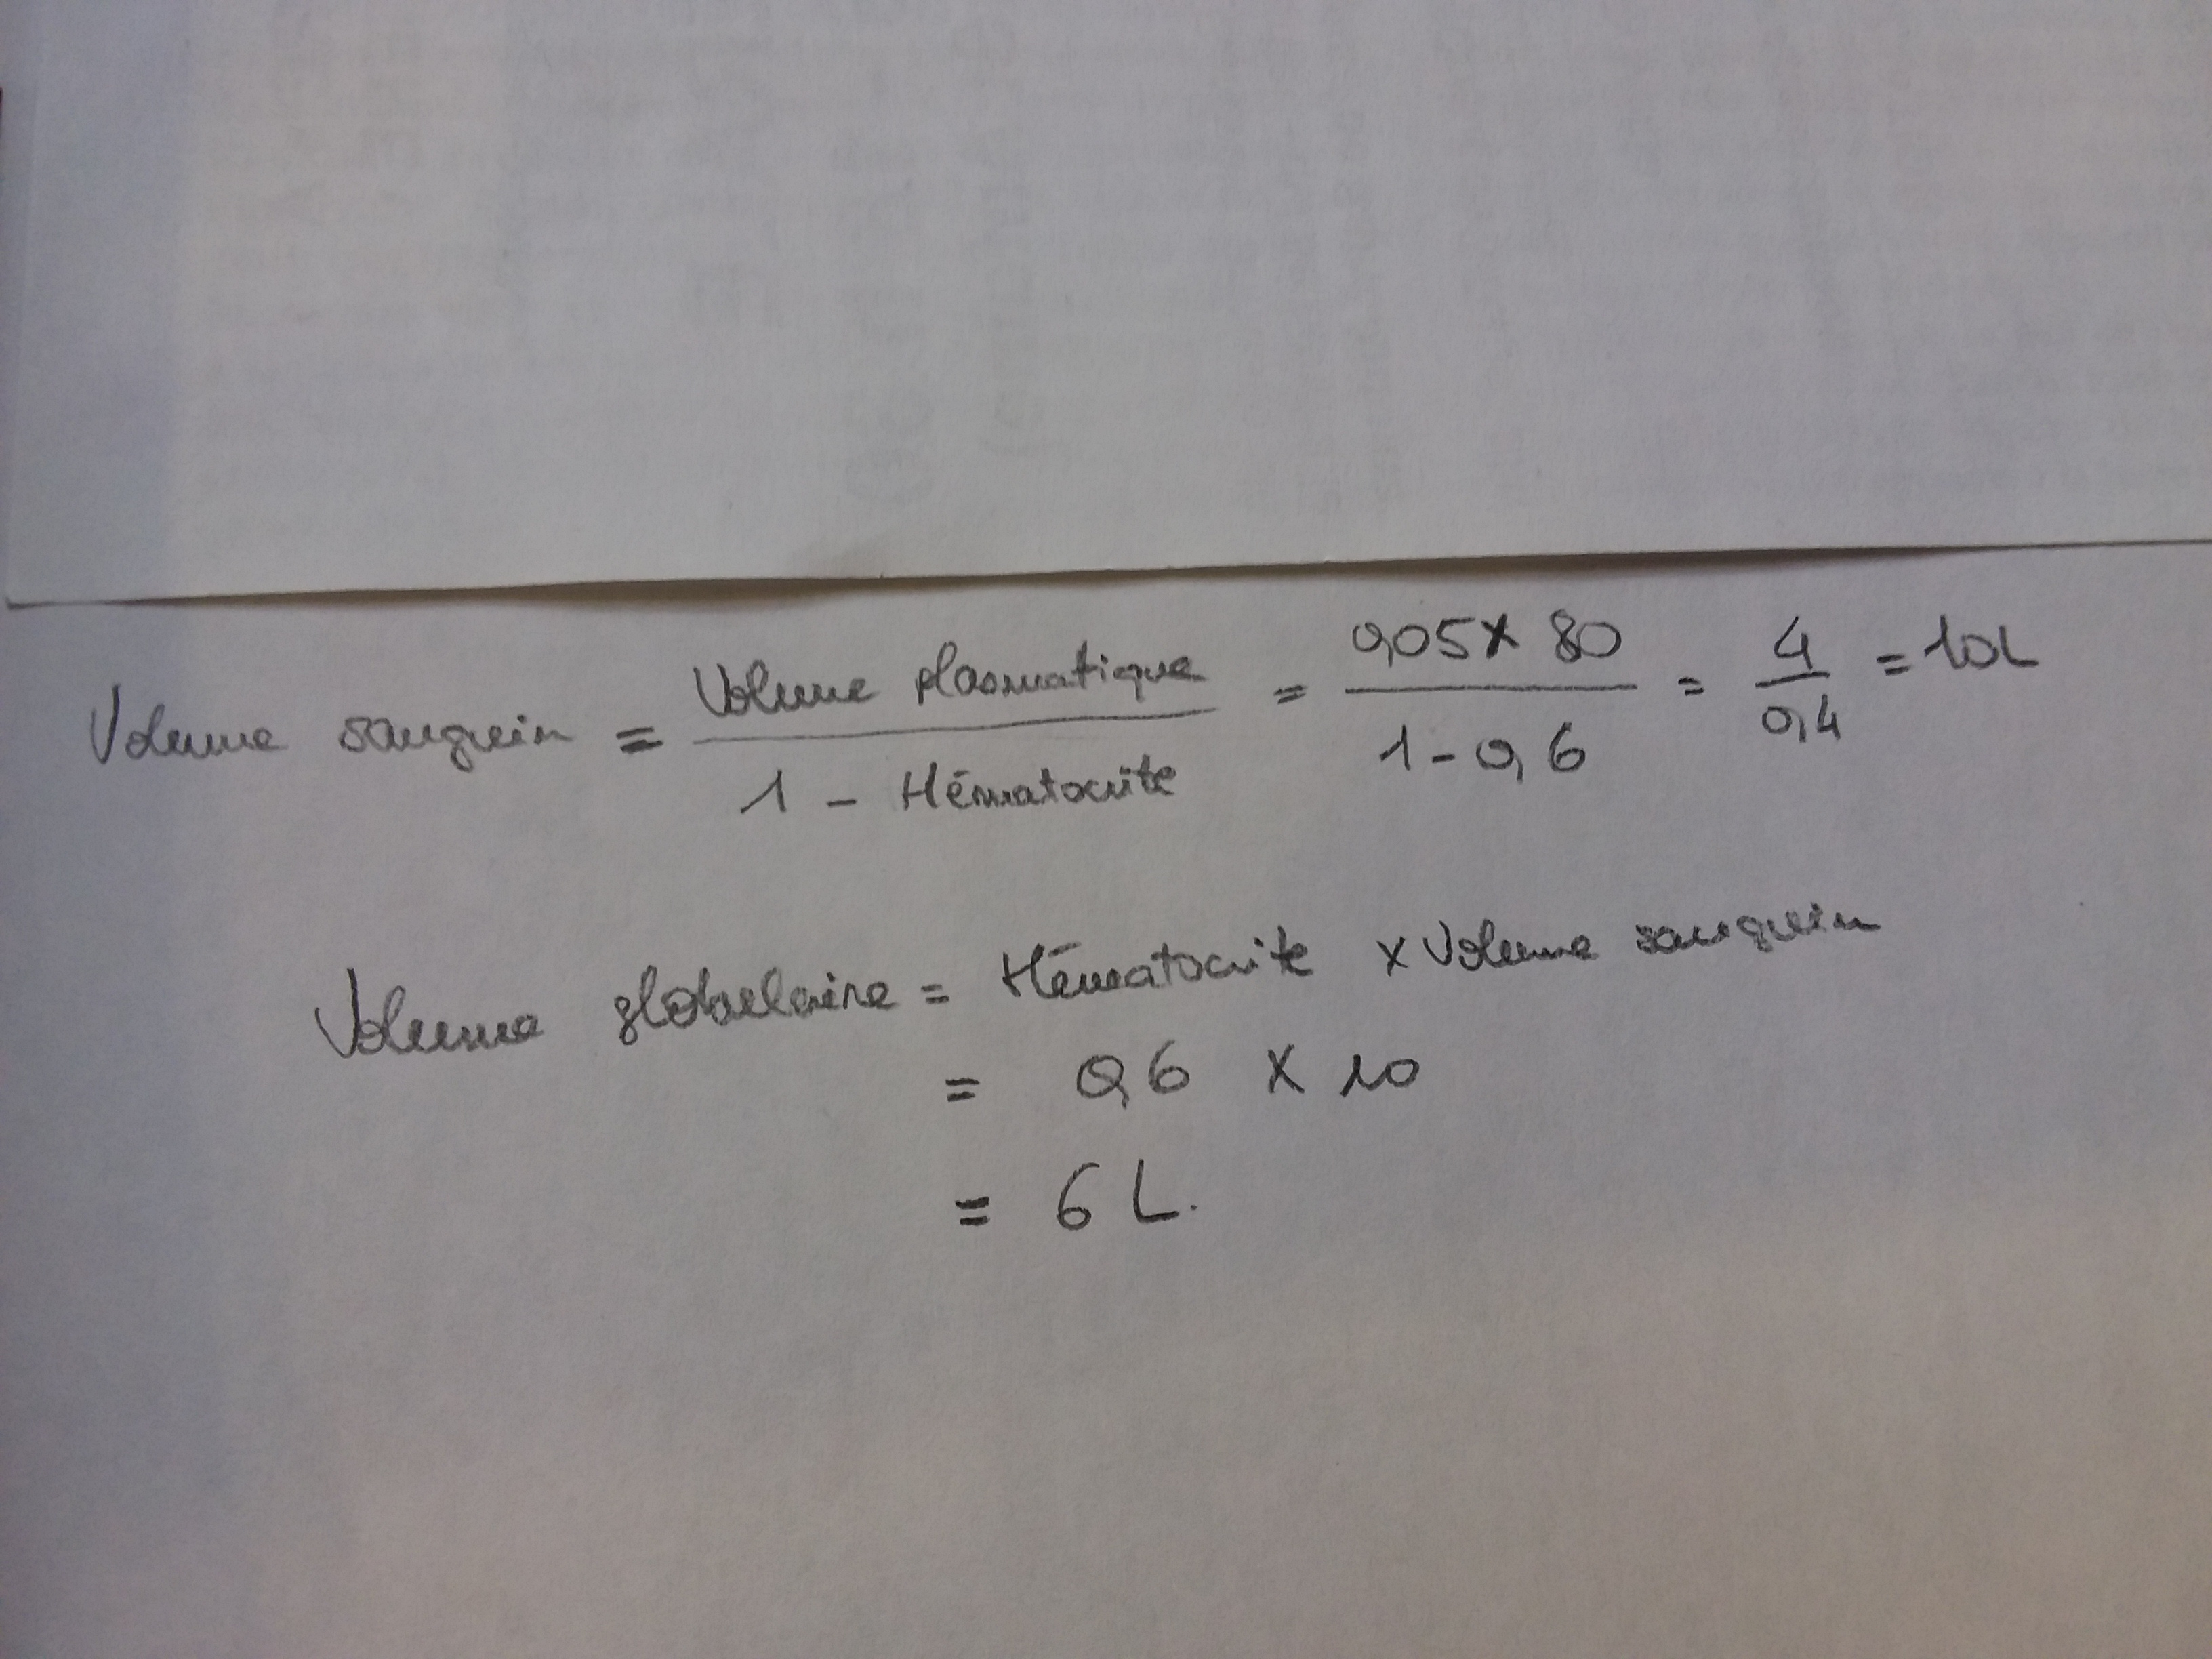 Volume sanguin = Volume plasmatique / 1 - Hématocrite = 0,05 x 80 / 1 - 0,6 = 4 / 0,4 = 10L
Volume globulaire = Hématocrite x Volume sanguin
= 0,6 x 10
= 6 L.